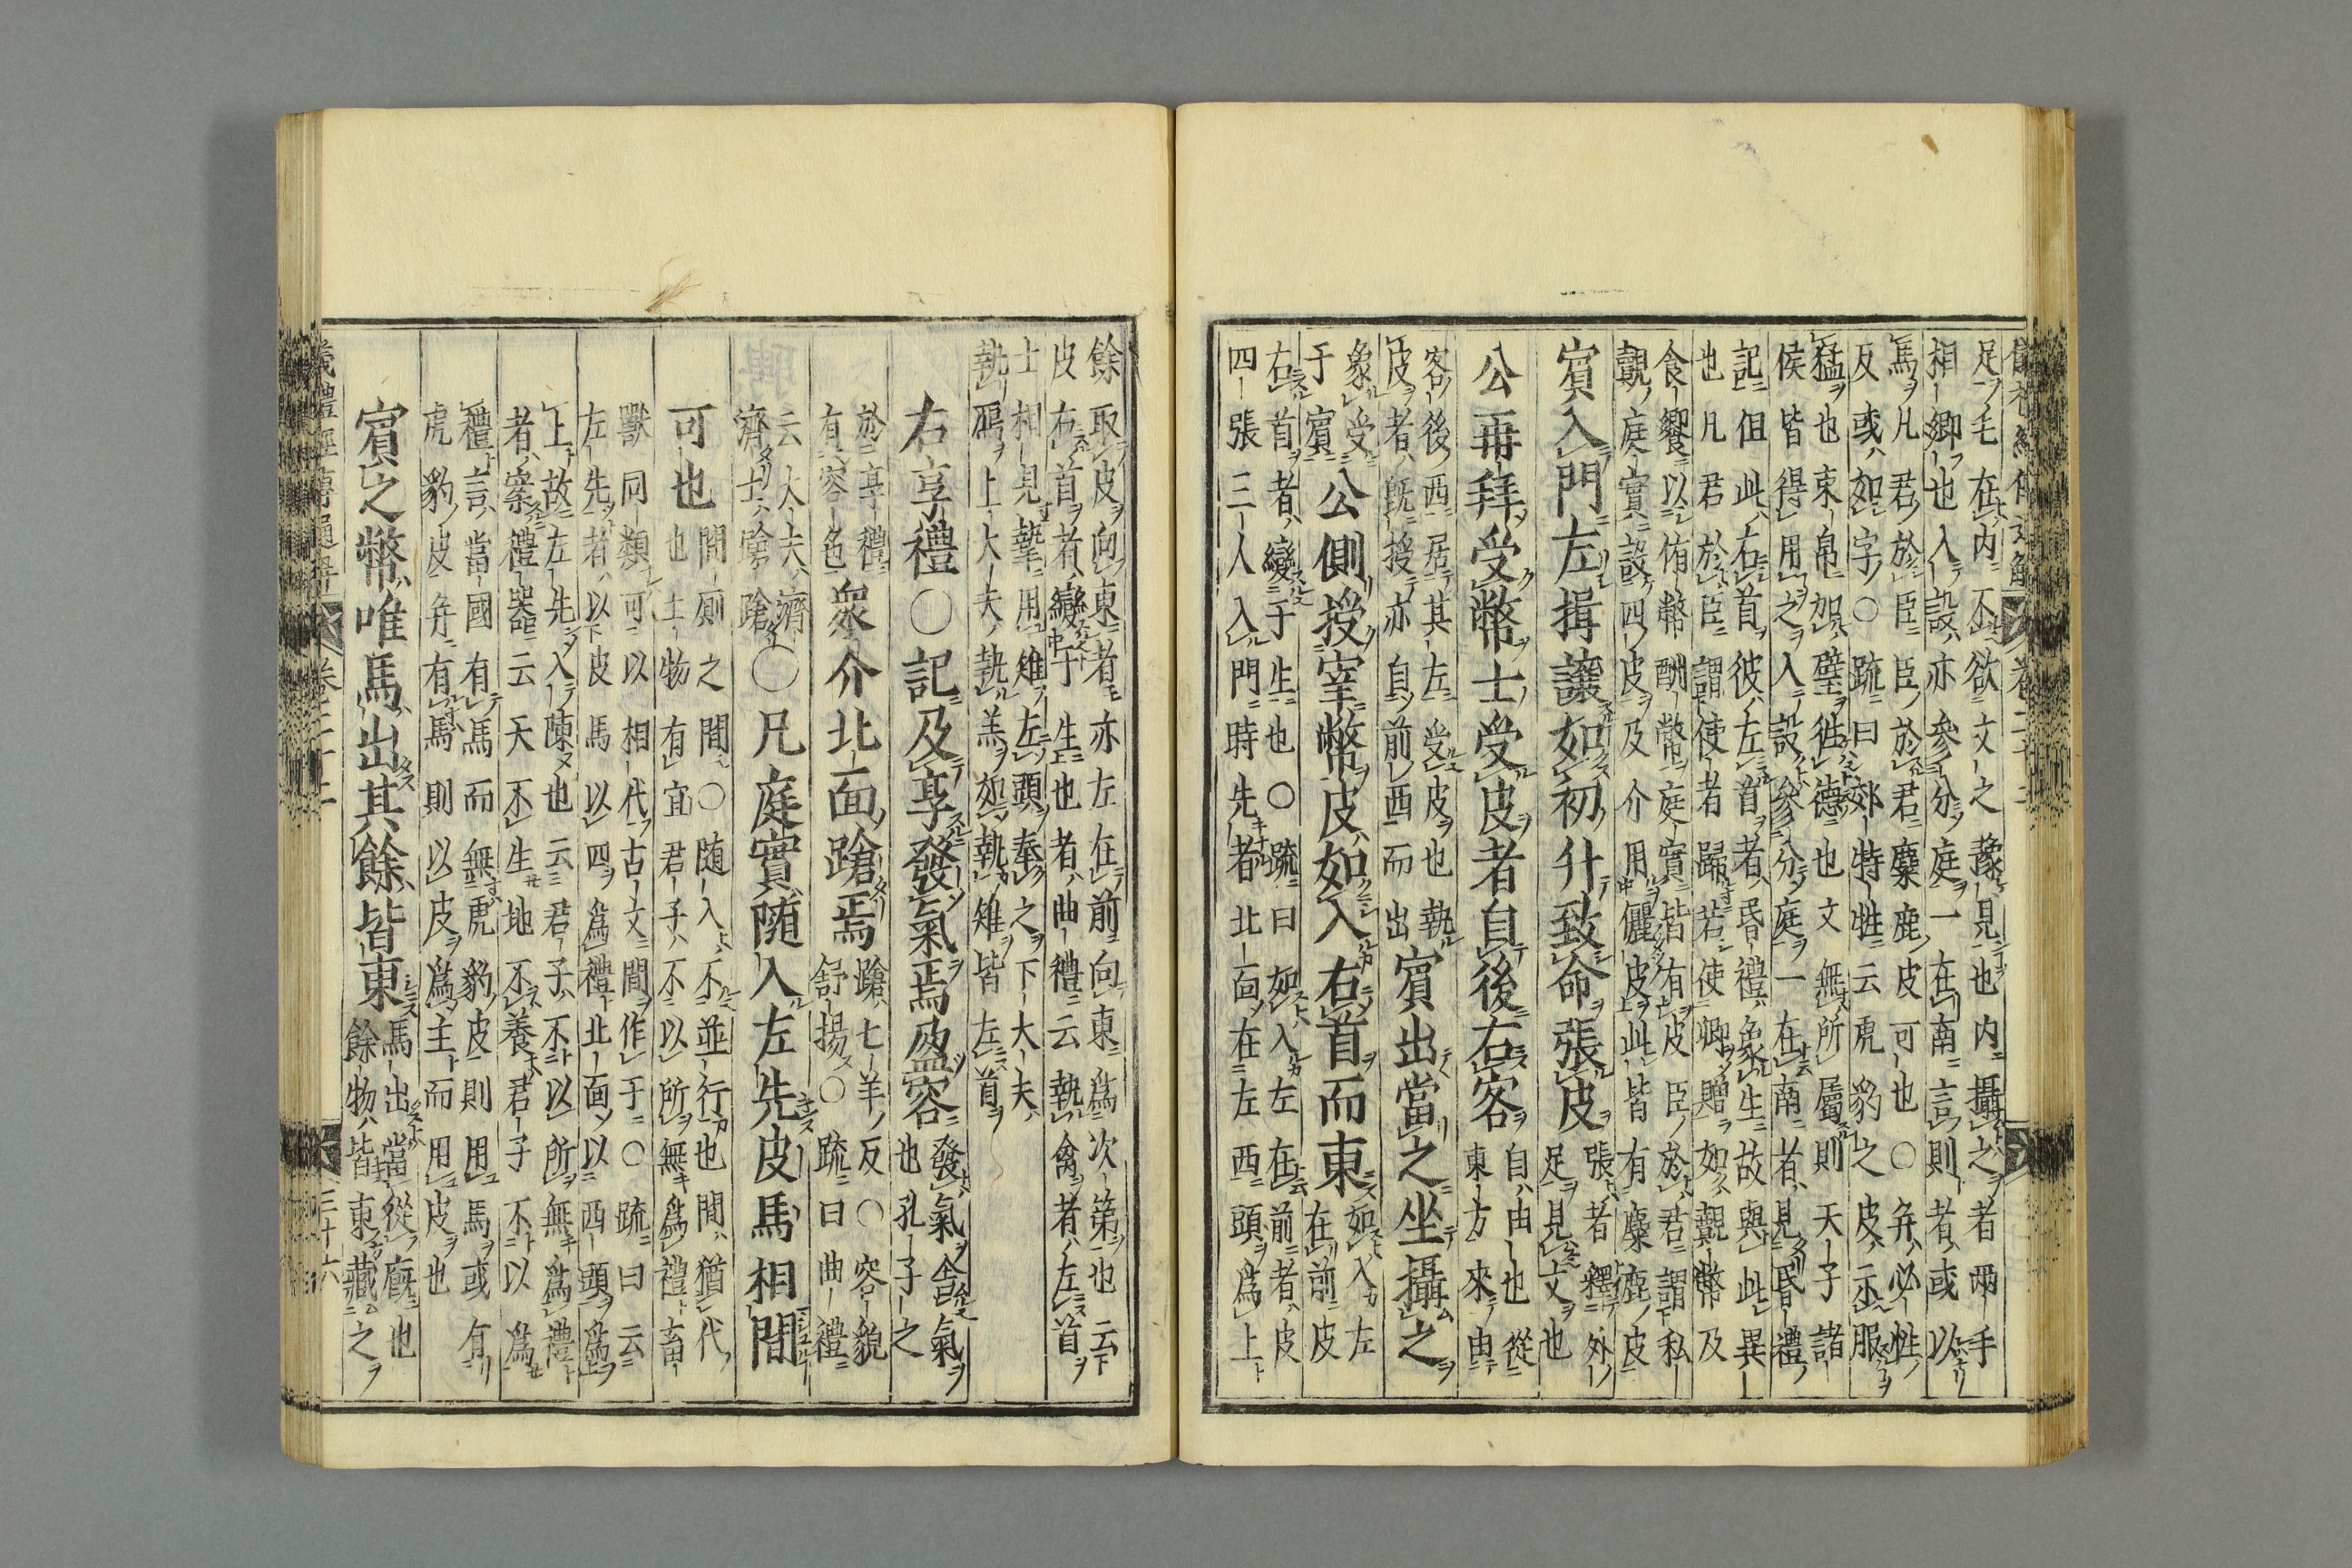 足毛在内不欲文之豫見也内攝之者兩手
相鄉也入設亦參分庭一在南言則者或以
馬凡君於臣臣於君麋鹿皮可也〇弁必牲
反或如字〇疏曰郊特牲云虎豹之皮示服
猛也束帛加璧徃德也文無所屬則天子諸
侯皆得用之入設參分庭一在南者見昏禮
記但此右首彼左首者昏禮象生故與此異
也凡君於臣謂使者歸若使卿贈如覿幣及
食饗以侑幣酬幣庭實皆有皮臣於君謂私
覿庭實設四皮及介用儷皮此皆有麋鹿皮
賓入門左揖讓如初升致命張皮
張者釋外
足見文也
公再拜受幣士受皮者自後右客
自由也從
東方來由
客後西居其左受皮也執
皮者既授亦自前西而出
賓出當之坐攝之
象受
于賓
公側授宰幣皮如入右首而東
如入左
在前皮
右首者變于生也〇疏曰如入左在前者皮
四張三人入門時先者北面在左西頭爲上
餘取皮向東者亦左在前向東爲次第也云
皮右首者變于生也者曲禮云執禽者左首
士相見摯用雉左頭奉之下大夫
執鴈上大夫執羔如執雉皆左首
右享禮〇記及享發氣焉盈容
發氣舍氣
也孔子之
於享禮
有容色
衆介北面蹌焉
蹌七羊反〇容貌
舒揚〇疏曰曲禮
云大夫濟
濟士蹌蹌
〇凡庭實随入左先皮馬相間
可也
間厠之間〇随入不並行也間猶代
也土物有宜君子不以所無爲禮畜
獸同類可以相代古文間作于〇疏曰云
左先者以皮馬以四爲禮北面以西頭爲
上故左先入陳也云君子不以所無爲禮
者案禮器云天不生地不養君子不以爲
禮言當國有馬而無虎豹皮則用馬或有
虎豹皮并有馬則以皮爲主而用皮也
賓之幣唯馬出其餘皆東
馬出當從廐也
餘物皆東藏之
儀禮經傳通解 卷二十二 三十六